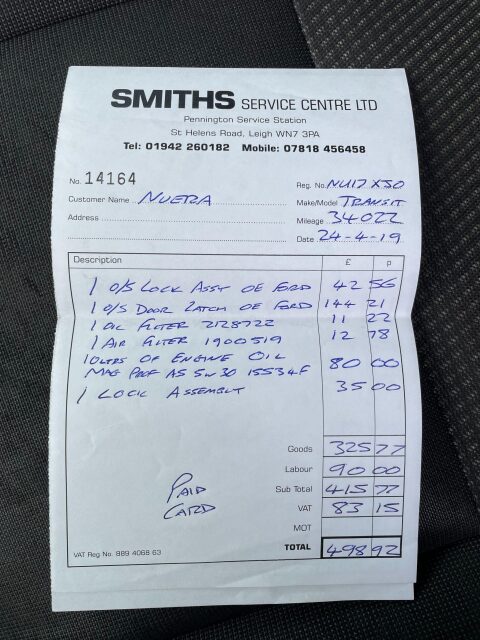 SMITHS SERVICE CENTRE LTD
Pennington Service Station
St Helens Road, Leigh WN7 3PA
Tel: 01942 260182 Mobile: 07818 456458
No. 14164
Reg. No. NU17 XSO
Customer Name NUERA
Make/Model TRANSIT
Address
Mileage 34022
Date 24-4-19
Description £ p
1 O/S LOCK ASSY OE FORD 42 56
1 O/S DOOR LATCH OE FORD 144 21
1 OIL FILTER 2128722 11 22
1 AIR FILTER 1900519 12 78
10LTRS OF ENGINE OIL
MAG PROF A5 5W30 15534F 80 00
1 LOCK ASSEMBLY 35 00
Goods 325 77
Labour 90 00
PAID
Sub Total 415 77
CARD
VAT 83 15
MOT
VAT Reg No. 889 4068 63
TOTAL 498 92